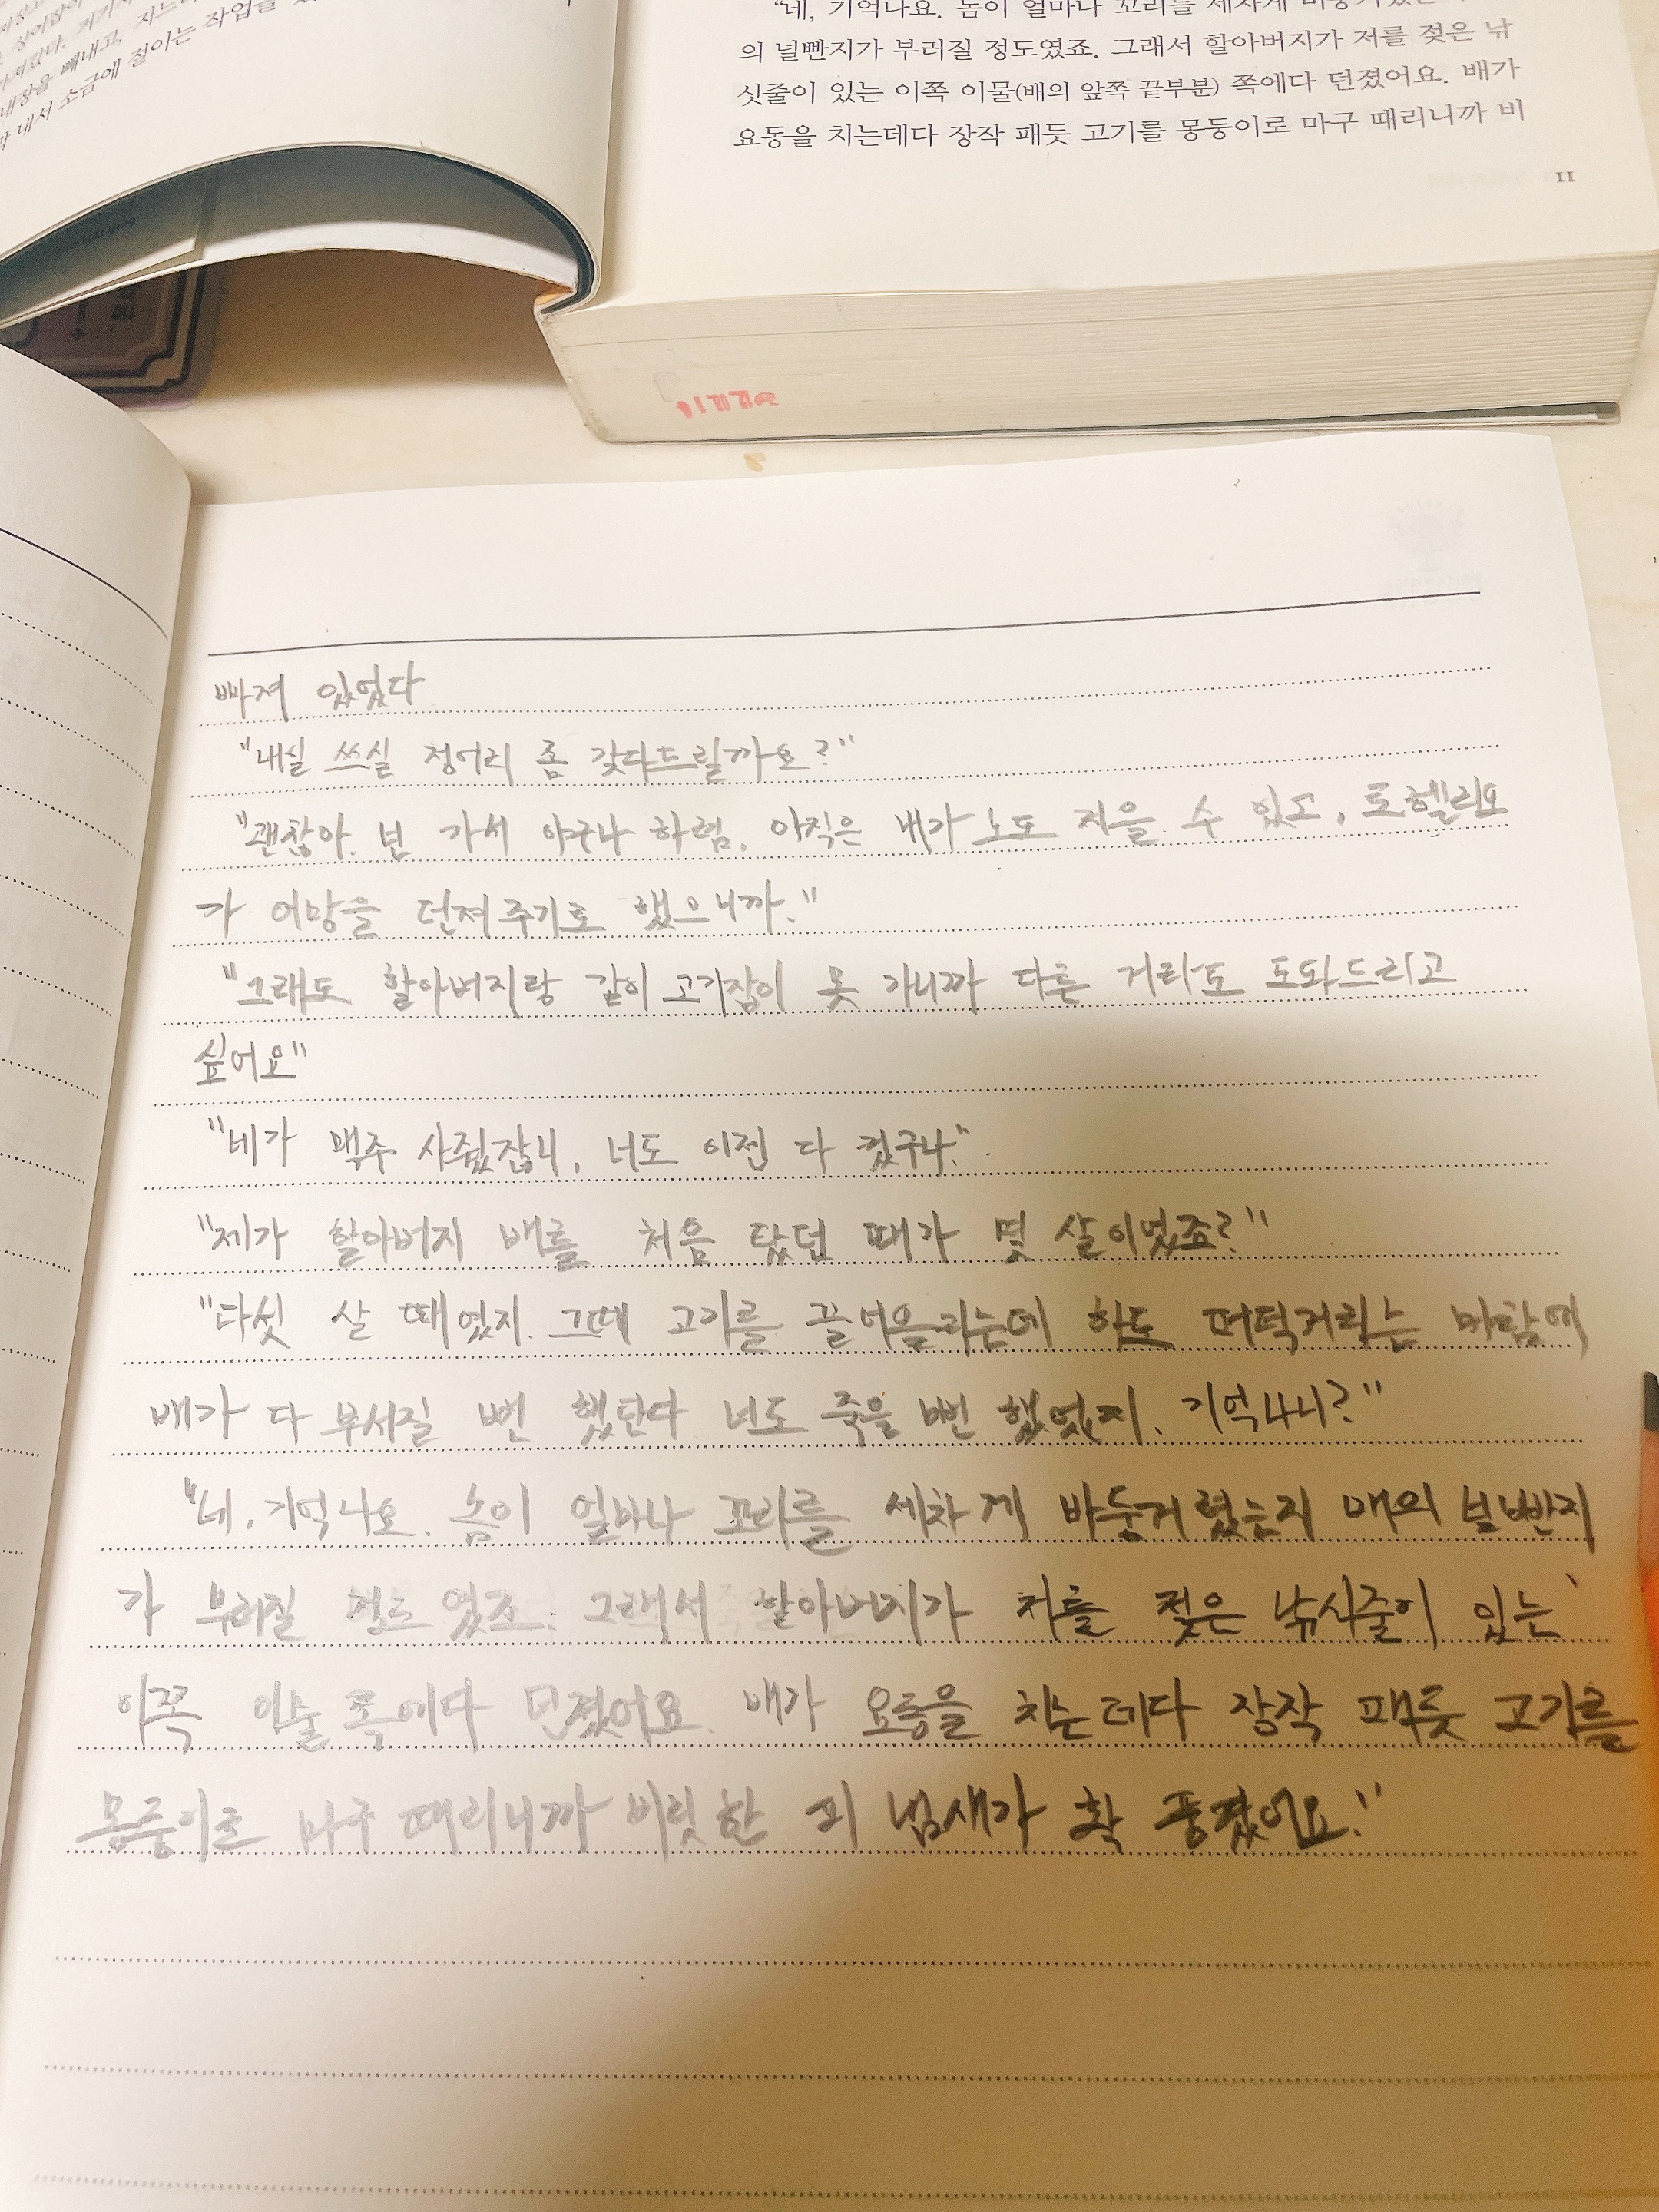 내장을 빼내고, 지느
내서 소금에 절이는 작업을
"네, 기억나요. 놈이 얼마나 꼬리를 세차게
의 널빤지가 부러질 정도였죠. 그래서 할아버지가 저를 젖은 낚
싯줄이 있는 이쪽 이물(배의 앞쪽 끝부분) 쪽에다 던졌어요. 배가
요동을 치는데다 장작 패듯 고기를 몽둥이로 마구 때리니까 비
11
빠져 있었다
"내일 쓰실 정어리 좀 갖다드릴까요?"
"괜찮아. 넌 가서 야구나 하렴. 아직은 내가 노도 저을 수 있고, 로헬리오
가 어망을 던져주기로 했으니까."
"그래도 할아버지랑 같이 고기잡이 못 가니까 다른 거라도 도와드리고
싶어요"
"네가 맥주 사줬잖니, 너도 이젠 다 컸구나."
"제가 할아버지 배를 처음 탔던 때가 몇 살이었죠?"
"다섯 살 때였지. 그때 고기를 끌어올리는데 하도 퍼덕거리는 바람에
배가 다 부서질 뻔 했단다 너도 죽을 뻔 했었지. 기억나니?"
"네, 기억나요. 놈이 얼마나 꼬리를 세차게 바둥거렸는지 배의 널빤지
가 부러질 정도였죠. 그래서 할아버지가 저를 젖은 낚시줄이 있는
이쪽 이물 쪽에다 던졌어요. 배가 요동을 치는데다 장작 패듯 고기를
몽둥이로 마구 때리니까 비릿한 피 냄새가 확 풍겼어요."